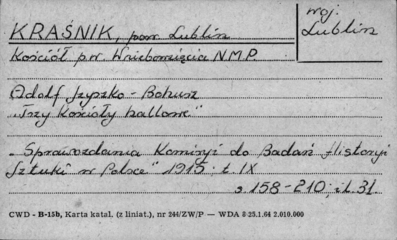 KRAŚNIK, pow. Lublin
woj. Lublin
Kościół p.w. Wniebowzięcia N.M.P.
Adolf Szyszko-Bohusz
"Trzy Kościoły hallowe"
"Sprawozdania Komisyi do Badań Historyi
Sztuki w Polsce" 1915; t. IX
s. 158-210; il. 31.
CWD - B-15b, Karta katal. (z liniat.), nr 244/ZW/P — WDA 8 25.1.64 2.010.000